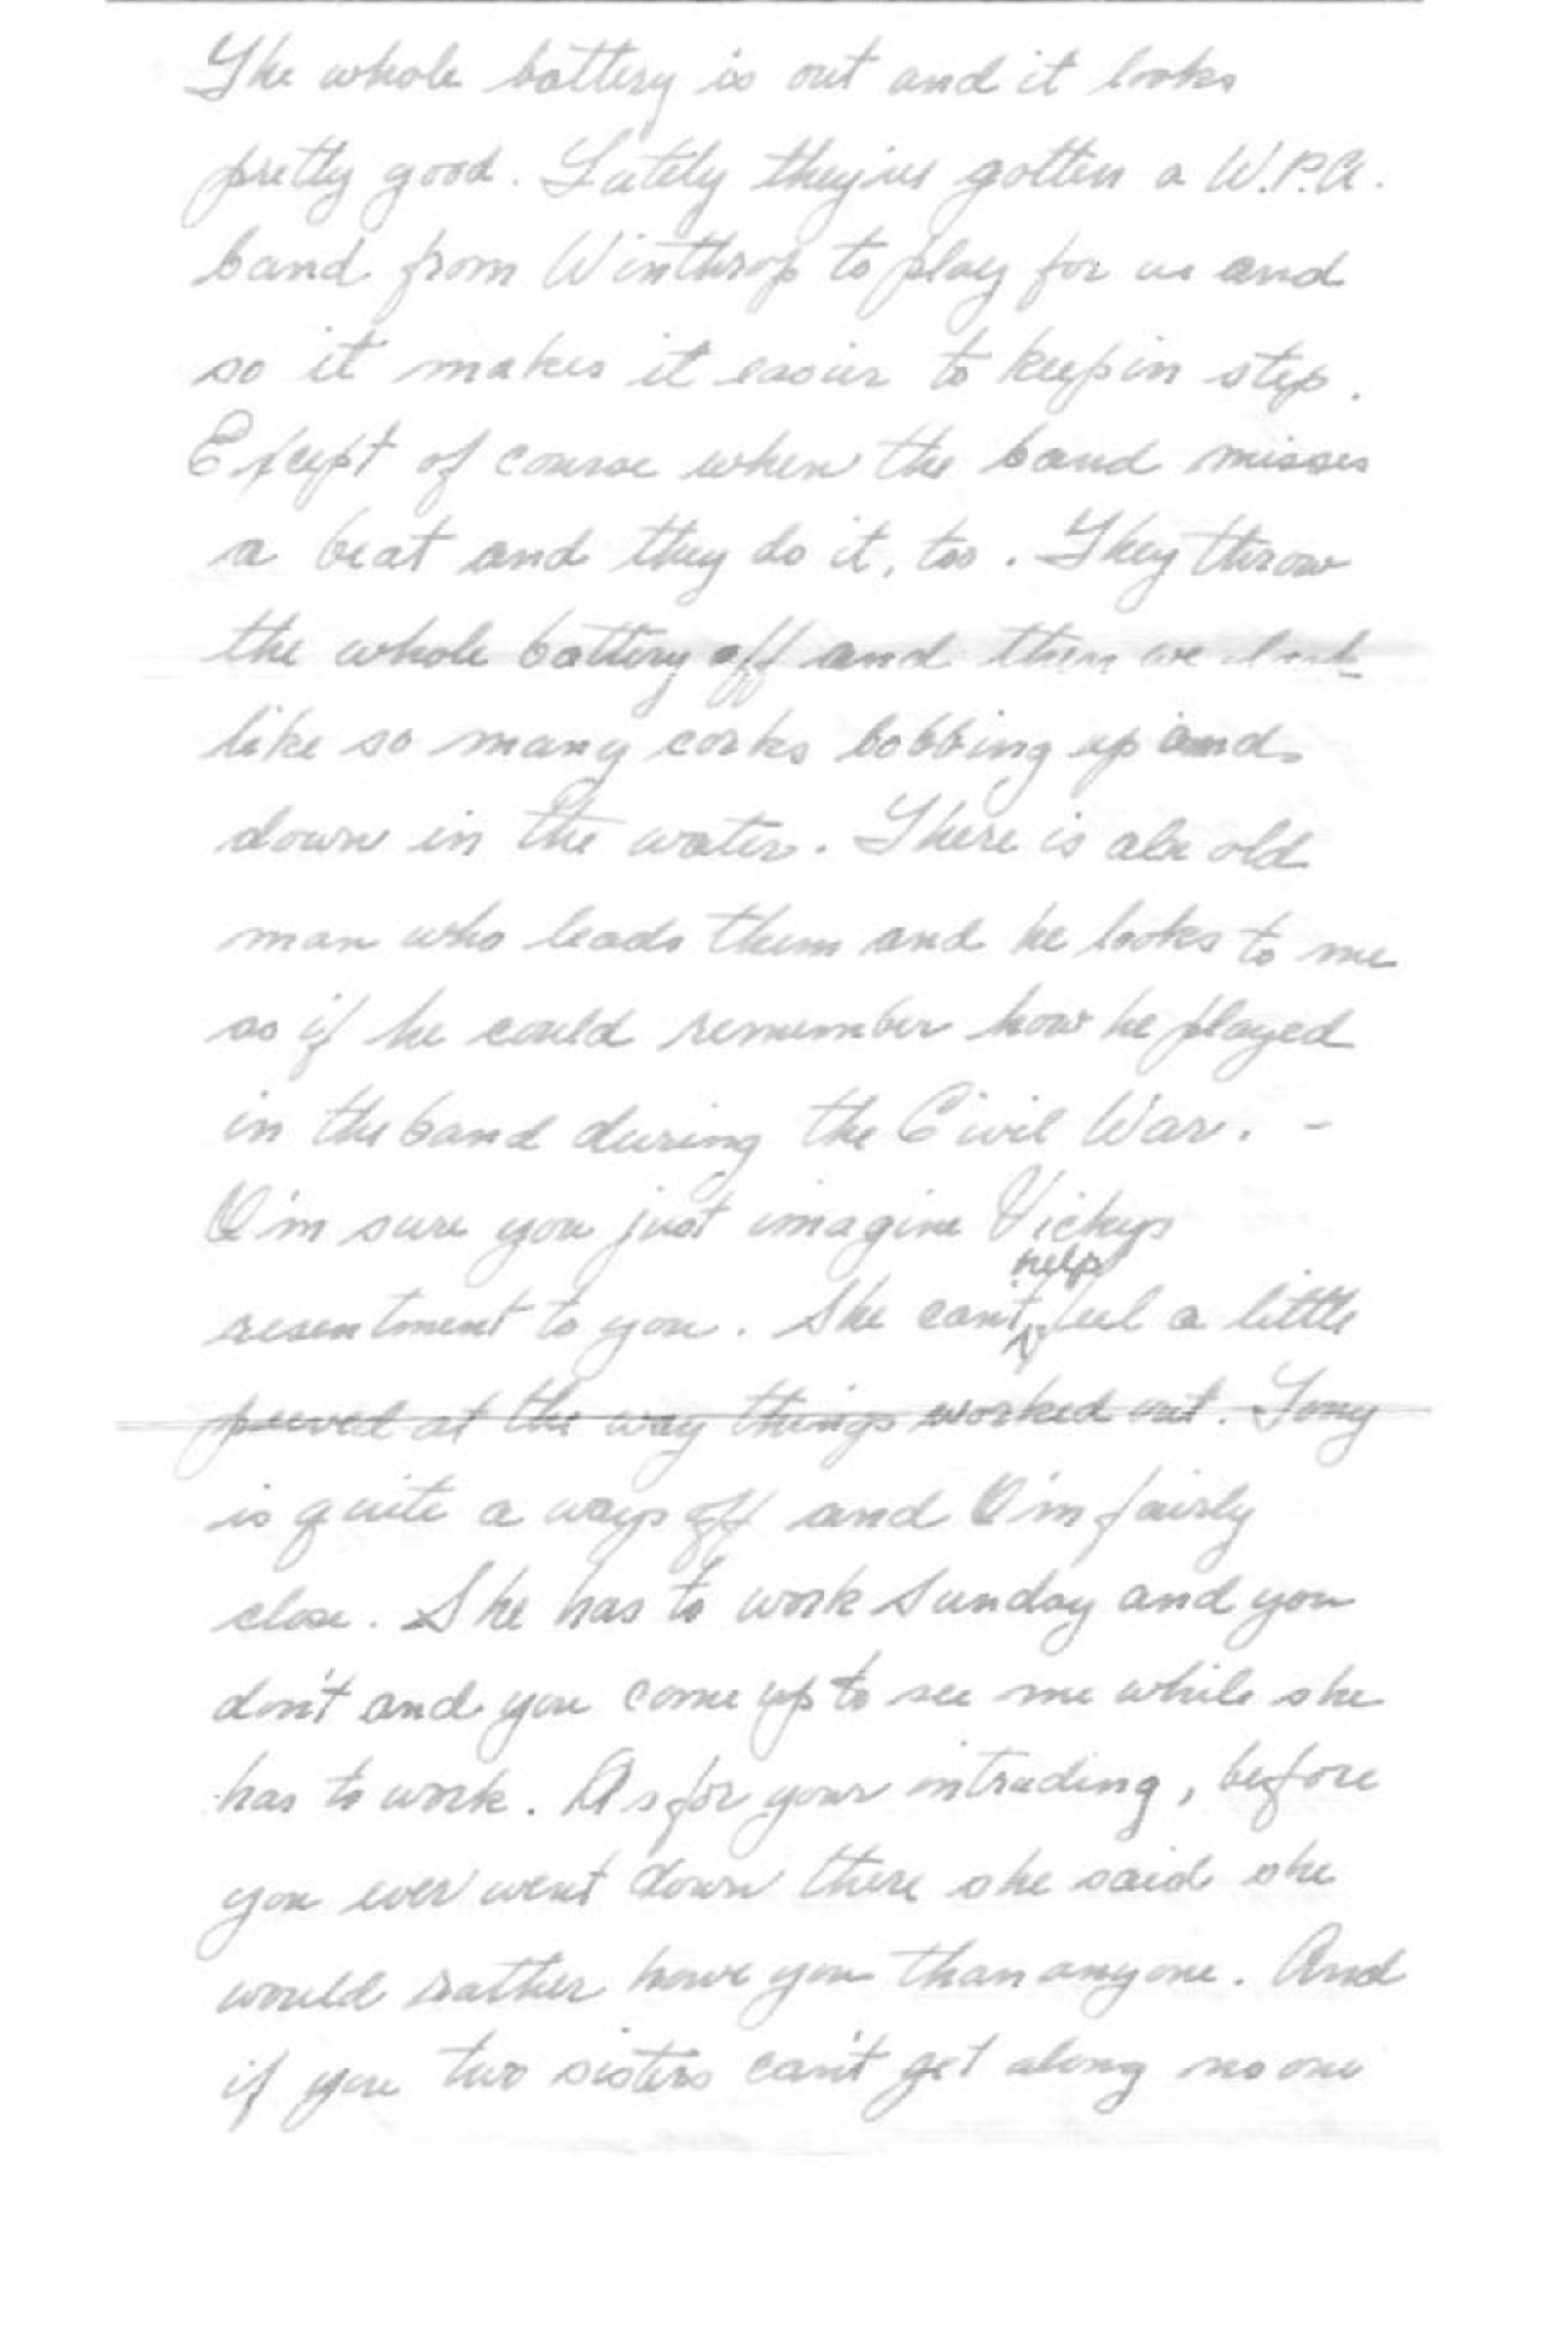 The whole battery is out and it looks
pretty good. Lately they've gotten a W.P.A.
band from Winthrop to play for us and
so it makes it easier to keep in step.
Except of course when the band misses
a beat and they do it, too. They throw
the whole battery off and then we look
like so many corks bobbing up and
down in the water. There is old
man who leads them and he looks to me
as if he could remember how he played
in the band during the Civil War. -
I'm sure you just imagine Vickys
resentment to you. She can't help feel a little
peeved at the way things worked out. Tony
is quite a ways off and I'm fairly
close. She has to work Sunday and you
don't and you come up to see me while she
has to work. As for your intruding, before
you ever went down there she said she
would rather have you than anyone. And
if you two sisters can't get along no one